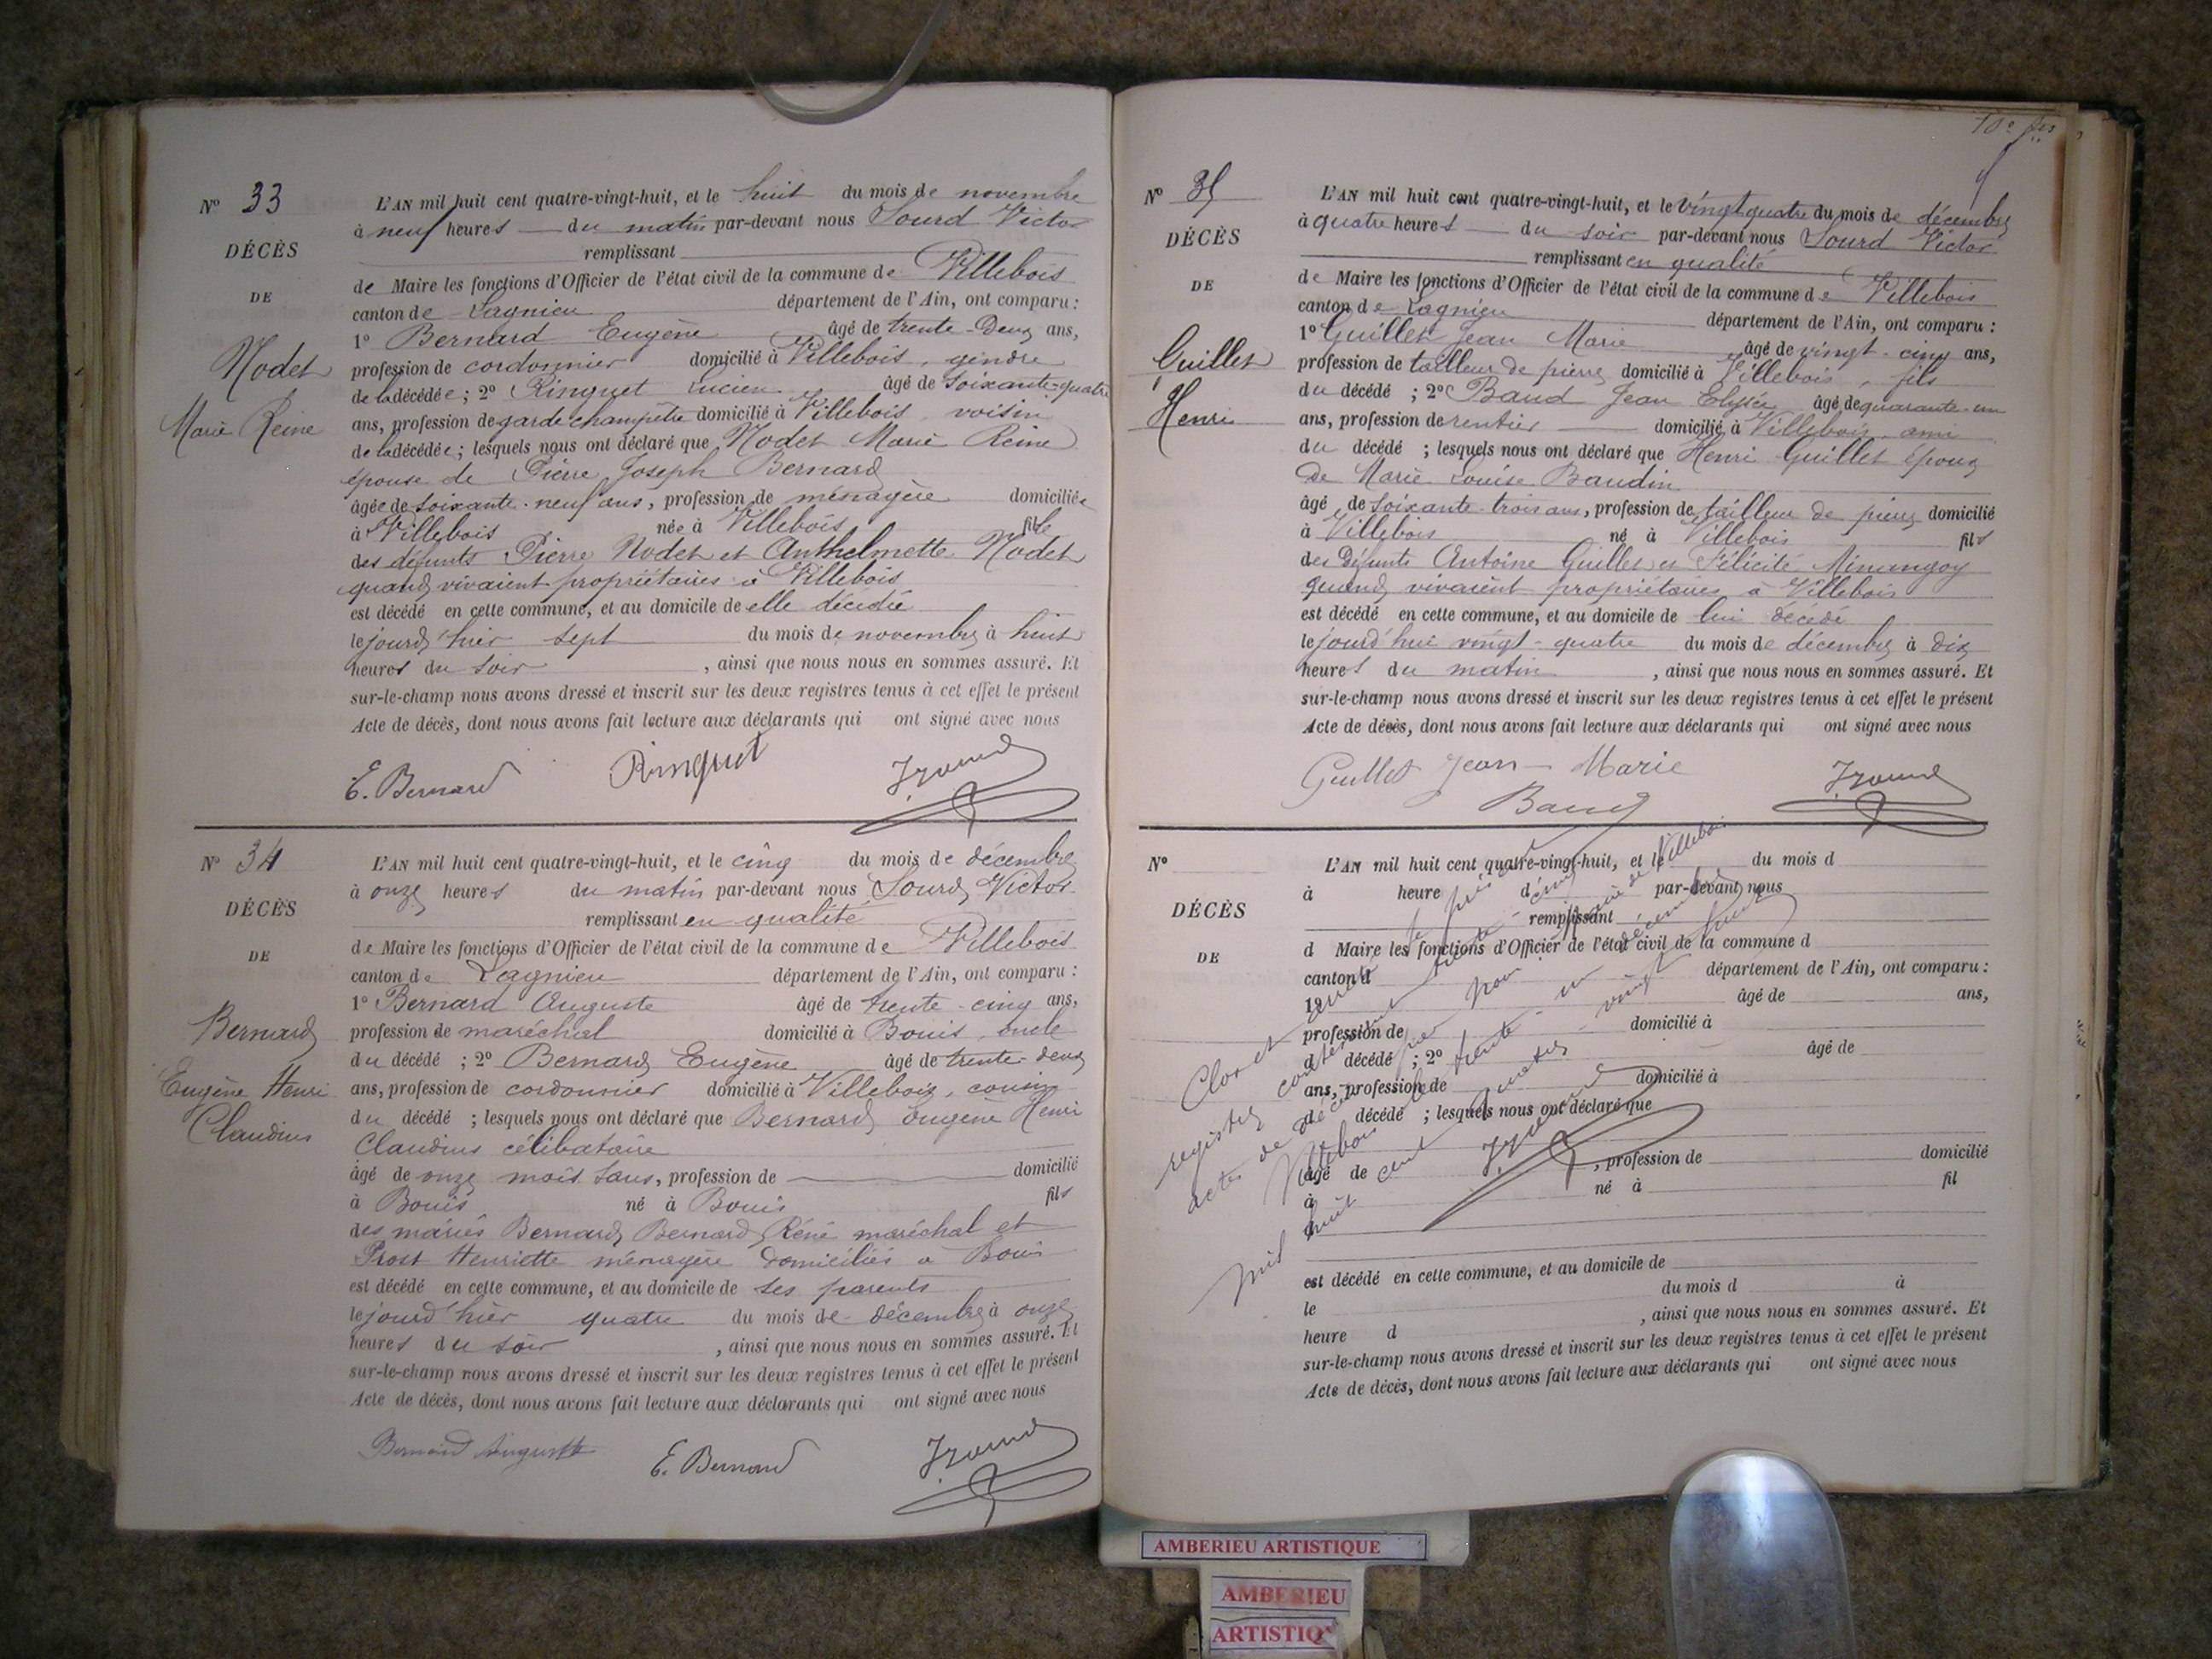 N° 33
DÉCÈS
DE
Nodet
Marie Reine
L'AN mil huit cent quatre-vingt-huit, et le huit du mois de novembre
à neuf heures du matin par-devant nous Sourd Victor
remplissant
de Maire les fonctions d'Officier de l'état civil de la commune de Villebois
canton de Lagnieu département de l'Ain, ont comparu :
1° Bernard Eugène âgé de trente-deux ans,
profession de cordonnier domicilié à Villebois, gendre
de la décédée ; 2° Ringuet Lucien âgé de soixante-quatre
ans, profession de garde champêtre domicilié à Villebois voisin
de la décédée ; lesquels nous ont déclaré que Nodet Marie Reine
épouse de Pierre Joseph Bernard
âgée de soixante-neuf ans, profession de ménagère domiciliée
à Villebois née à Villebois fille
des défunts Pierre Nodet et Anthelmette Nodet
quand vivaient propriétaires à Villebois
est décédé en cette commune, et au domicile de elle décédée
le jourd'hier sept du mois de novembre à huit
heures du soir , ainsi que nous nous en sommes assuré. Et
sur-le-champ nous avons dressé et inscrit sur les deux registres tenus à cet effet le présent
Acte de décès, dont nous avons fait lecture aux déclarants qui ont signé avec nous
E. Bernard Ringuet
N° 34
DÉCÈS
DE
Bernard
Eugène Henri
Claudius
L'AN mil huit cent quatre-vingt-huit, et le cinq du mois de décembre
à onze heures du matin par-devant nous Sourd Victor
remplissant en qualité
de Maire les fonctions d'Officier de l'état civil de la commune de Villebois
canton de Lagnieu département de l'Ain, ont comparu :
1° Bernard Auguste âgé de trente-cinq ans,
profession de maréchal domicilié à Bouis, oncle
du décédé ; 2° Bernard Eugène âgé de trente-deux
ans, profession de cordonnier domicilié à Villebois, cousin
du décédé ; lesquels nous ont déclaré que Bernard Eugène Henri
Claudius célibataire
âgé de onze mois sans, profession de domicilié
à Bouis né à Bouis fils
des mariés Bernard Bernard Réné maréchal et
Prost Henriette ménagère domiciliés à Bouis
est décédé en cette commune, et au domicile de ses parents
le jourd'hier quatre du mois de décembre à onze
heures du soir , ainsi que nous nous en sommes assuré. Et
sur-le-champ nous avons dressé et inscrit sur les deux registres tenus à cet effet le présent
Acte de décès, dont nous avons fait lecture aux déclarants qui ont signé avec nous
Bernard Auguste E. Bernard
N° 35
DÉCÈS
DE
Guillet
Henri
L'AN mil huit cent quatre-vingt-huit, et le vingt quatre du mois de décembre
à quatre heures du soir par-devant nous Sourd Victor
remplissant en qualité
de Maire les fonctions d'Officier de l'état civil de la commune de Villebois
canton de Lagnieu département de l'Ain, ont comparu :
1° Guillet Jean Marie âgé de vingt-cinq ans,
profession de tailleur de pierre domicilié à Villebois, fils
du décédé ; 2° Baud Jean Elysée âgé de quarante-un
ans, profession de rentier domicilié à Villebois ami
du décédé ; lesquels nous ont déclaré que Henri Guillet époux
de Marie Louise Baudin
âgé de soixante-trois ans, profession de tailleur de pierre domicilié
à Villebois né à Villebois fils
des défunts Antoine Guillet et Félicité Minangoy
quand vivaient propriétaires à Villebois
est décédé en cette commune, et au domicile de lui décédé
le jourd'hui vingt-quatre du mois de décembre à dix
heures du matin , ainsi que nous nous en sommes assuré. Et
sur-le-champ nous avons dressé et inscrit sur les deux registres tenus à cet effet le présent
Acte de décès, dont nous avons fait lecture aux déclarants qui ont signé avec nous
Guillet Jean-Marie
Baud
N°
DÉCÈS
DE
L'AN mil huit cent quatre-vingt-huit, et le du mois d
à heure d par-devant nous
remplissant
d Maire les fonctions d'Officier de l'état civil de la commune d
canton d département de l'Ain, ont comparu :
1° âgé de ans,
profession de domicilié à
d décédé ; 2° âgé de
ans, profession de domicilié à
d décédé ; lesquels nous ont déclaré que
âgé de , profession de domicilié
à né à fil
d
est décédé en cette commune, et au domicile de
le du mois d à
heure d , ainsi que nous nous en sommes assuré. Et
sur-le-champ nous avons dressé et inscrit sur les deux registres tenus à cet effet le présent
Acte de décès, dont nous avons fait lecture aux déclarants qui ont signé avec nous
Clos et arrêté le présent
registre contenant trente-cinq
actes de décès par nous maire de Villebois
Villebois le trente-un décembre
mil huit cent quatre-vingt huit
AMBERIEU ARTISTIQUE
AMBERIEU
ARTISTIQ